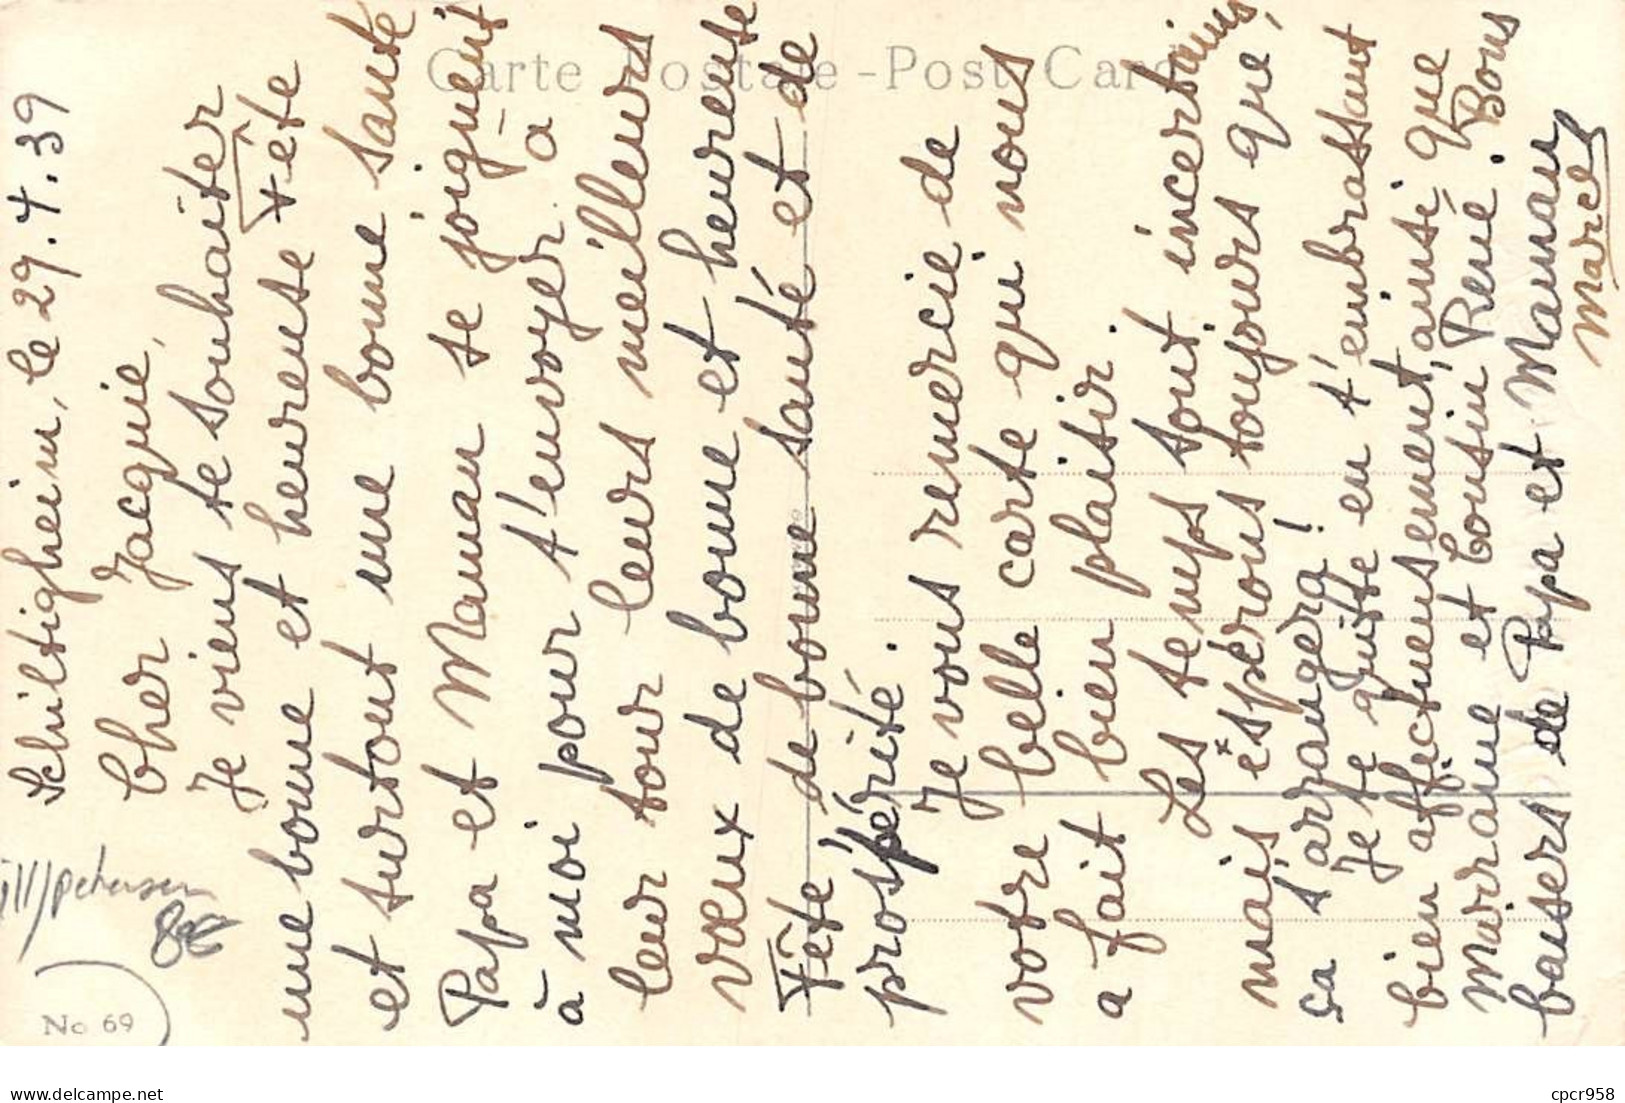 Schiltigheim, le 29.4.39
Cher Jacquie,
Je viens te souhaiter
une bonne et heureuse Fête
et surtout une bonne santé
Papa et Maman se joignent
à moi pour t'envoyer à
leur tour leurs meilleurs
vœux de bonne et heureuse
Fête, de bonne santé et de
prospérité.
Je vous remercie de
votre belle carte qui nous
a fait bien plaisir.
Les temps sont incertains
mais espérons toujours que,
ça s'arrangera!
Je te quitte en t'embrassant
bien affectueusement, ainsi que
Marraine et Cousin René. Bons
baisers de Papa et Maman
Marcel
Carte Postale - Post Card
No 69
8€
delcampe.net
cpcr958